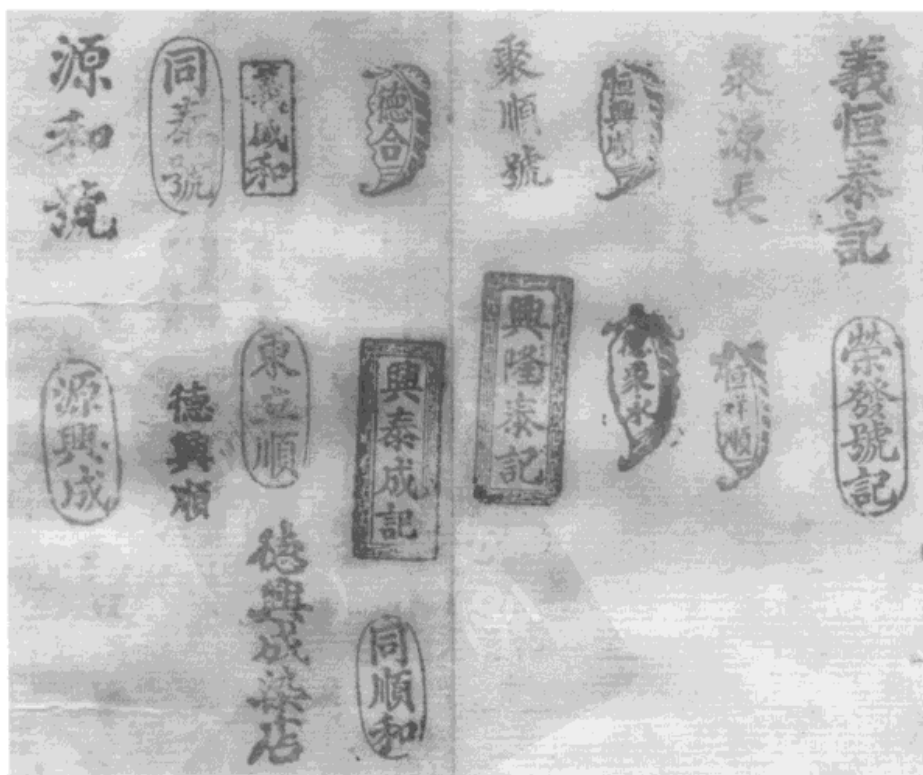 義恒泰記
聚源長
恒興順
聚順號
德合
義成和
同泰號
源和號
榮發號記
恒祥順
德聚永
興隆泰記
興泰成記
東立順
德興順
源興成
同順和
德興成染店